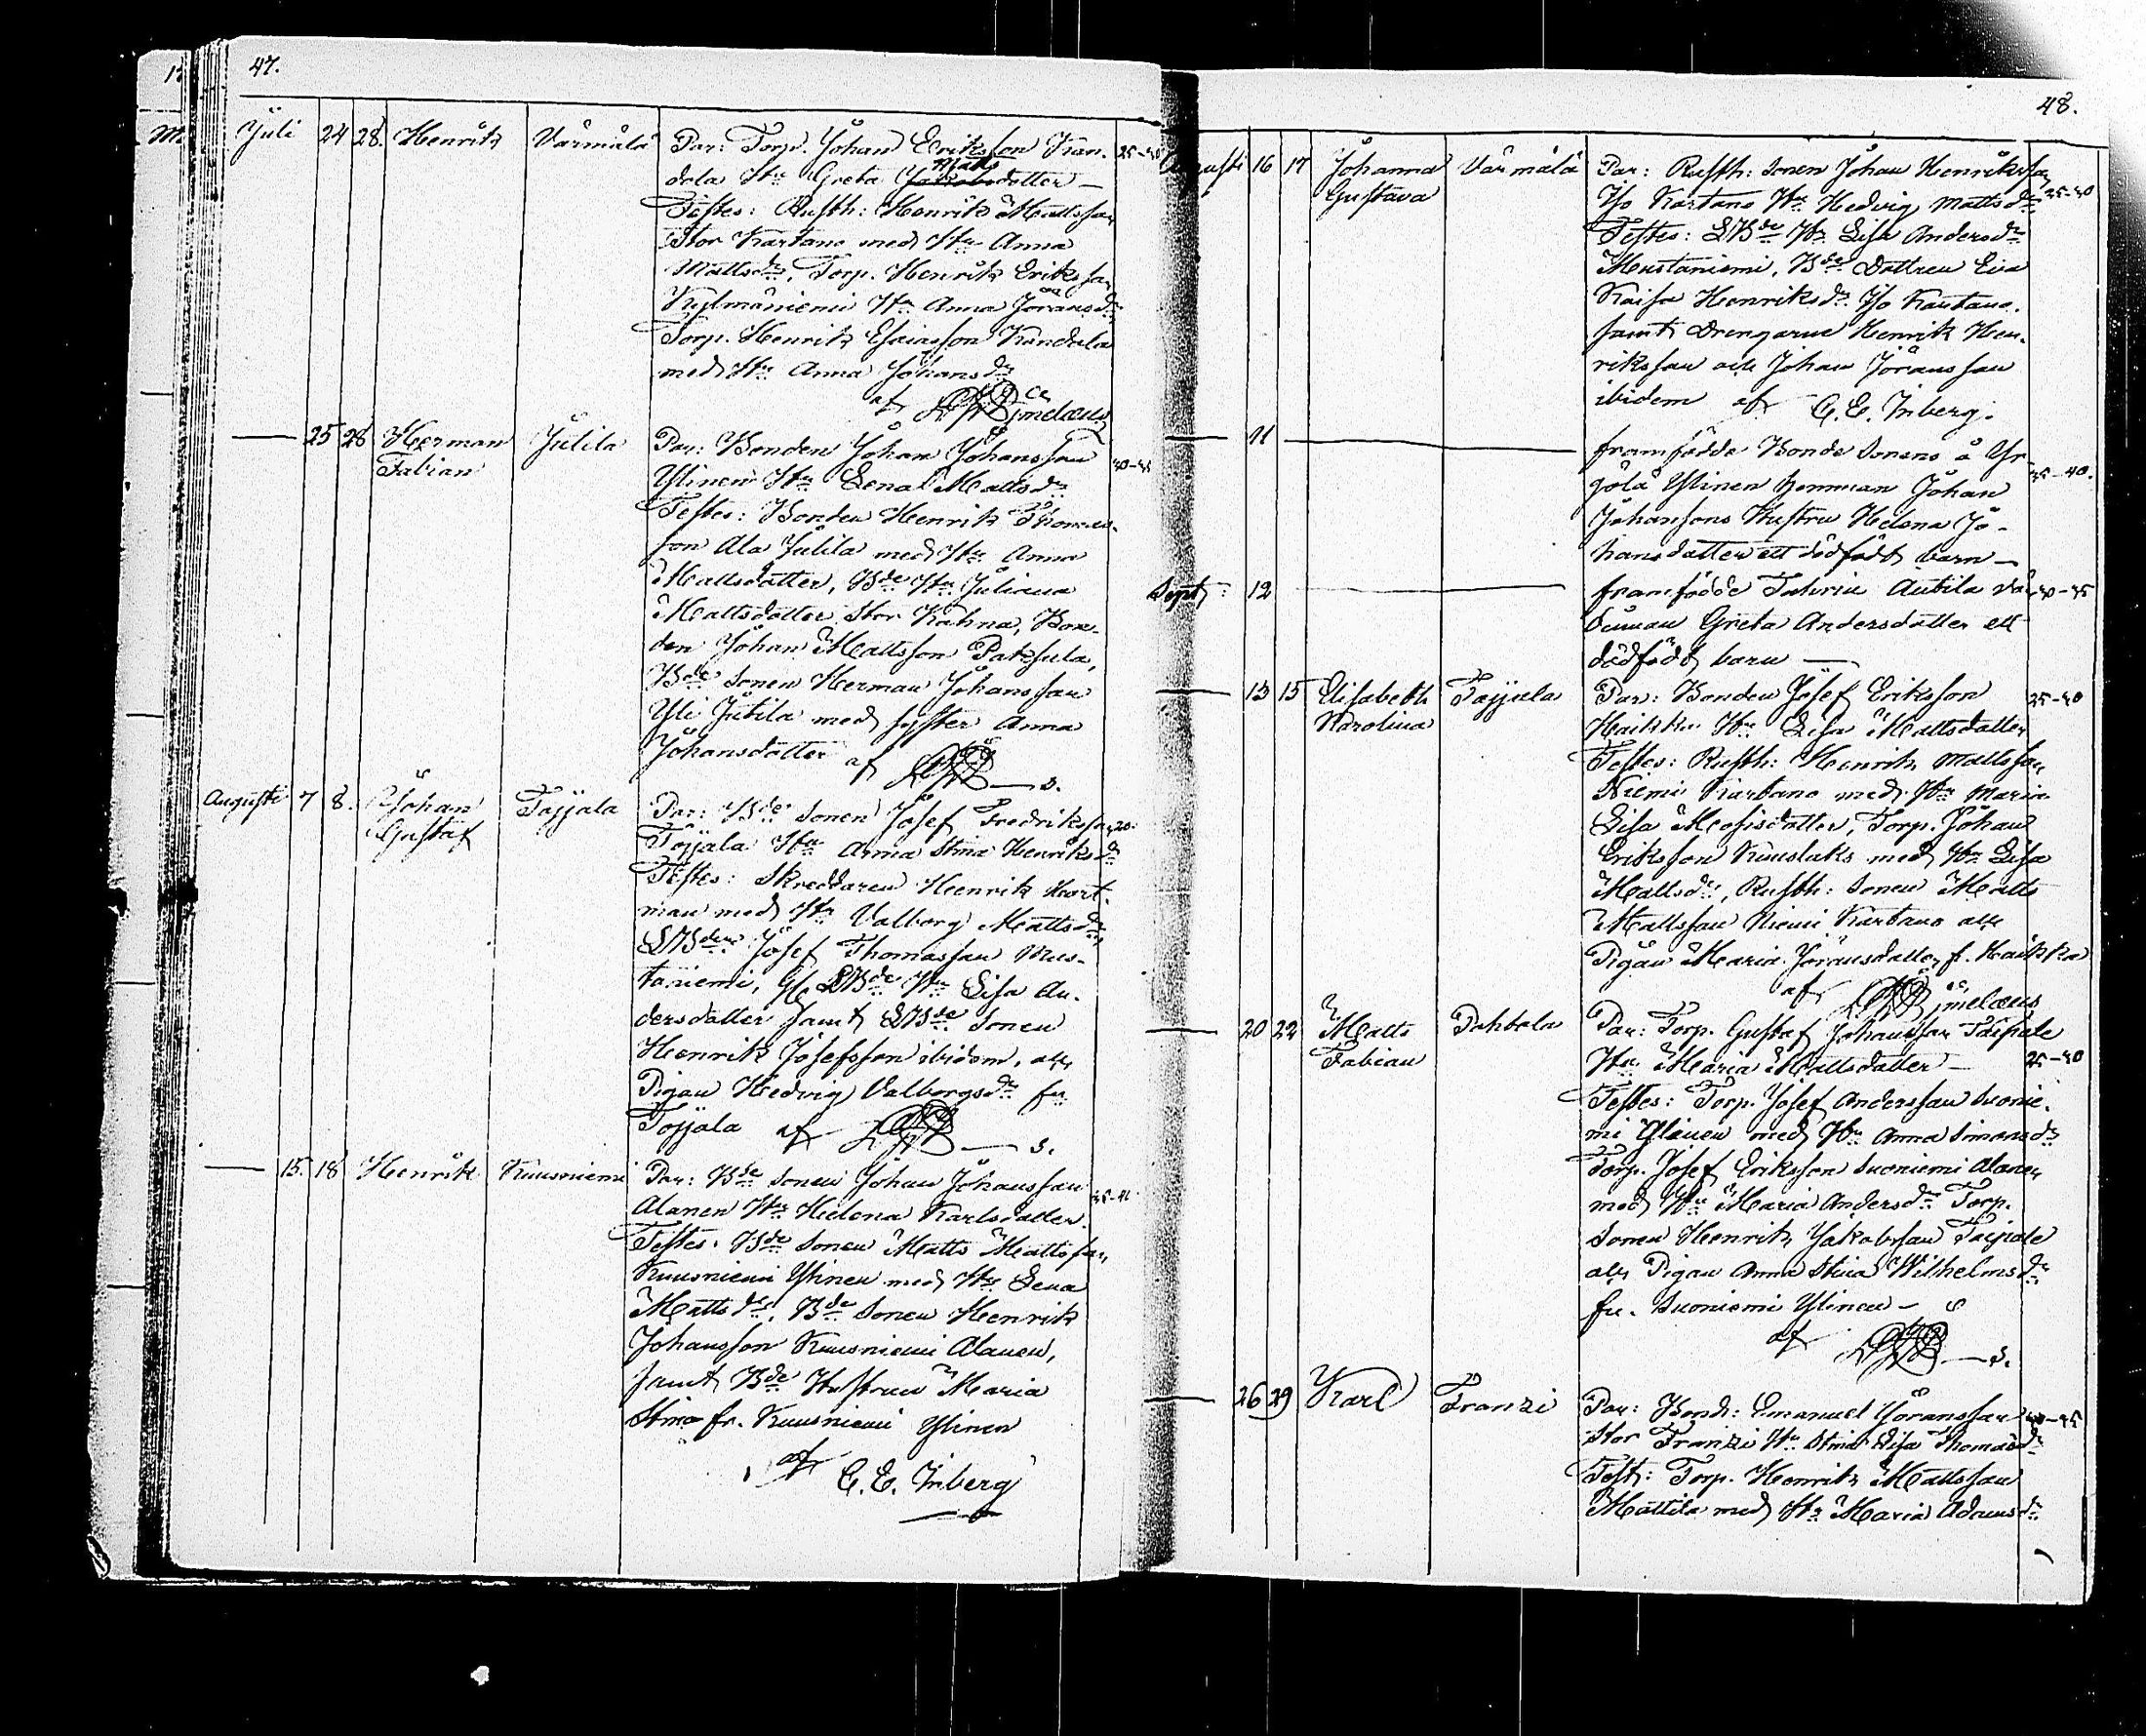 47.
Juli 24 28. Henrik Värmälä Par: Torp. Johan Eriksson Kan- 25-30
dola Hu Greta Matts Jakobsdotter —
Testes: Rusth: Henrik Mattsson
Stor Kartano med Hu Anna
Mattsdr, Torp. Henrik Eriksson
Kylmäniemi Hu Anna Jöransdr
Torp. Henrik Esaiasson Kandola
med Hu Anna Johansdr
af melæus
— 25 28 Herman Jutila Par: Bonden Johan Johansson
Fabian Ylinen Hu Lena Mattsdr
Testes: Bonden Henrik Thomas-
son Ala Jutila med Hu Anna
Mattsdotter, Bde Hu Juliana
Mattsdotter Stor Kahna, Bon-
den Johan Mattsson Paksula,
Bde Sonen Herman Johansson
Yli Jutila med syster Anna
Johansdotter af — s.
Augusti 7 8. Johan Tojjala Par: Bde Sonen Josef Fredriksson
Gustaf Tojjala Hu Anna Stina Henriksdr
Testes: Skreddaren Henrik Hart-
man med Hu Valborg Mattsdr
LBden Josef Thomasson Mus-
taniemi, LBde Hu Lisa An-
dersdotter samt LBde Sonen
Henrik Josefsson ibidem, och
Pigan Hedvig Valborgsdr fn
Tojjala af — s.
— 15. 18 Henrik Kuusniemi Par: Bde Sonen Johan Johansson
Alanen Hu Helena Karlsdotter.
Testes: Bde Sonen Matts Mattsson
Kuusniemi Ylinen med Hu Lena
Mattsdr, Bde Sonen Henrik
Johansson Kuusniemi Alanen,
samt Bde Hustrun Maria
Stina fr. Kuusniemi Ylinen
af C. E. Inberg
48.
Augusti 16 17 Johanna Värmälä Par: Rusth: Sonen Johan Henriksson
Gustava Iso Kartano Hu Hedvig Mattsdr 25-30
Testes: LBde Hu Lisa Andersdr
Mustaniemi, Bde Dottren Eva
Kaisa Henriksdr Iso Kartano.
samt Drengarne Henrik Hen-
riksson och Johan Jöransson
ibidem af C. E. Inberg.
— 11 — framfödde Bonde Sonens å Yr-
jölä Ylinen Johan 35-40.
Johansons Hustru Helena Jo-
hansdotter ett dödfödt barn —
Sept: 12 — framfödde
Greta Andersdotter ett
dödfödt barn —
— 13 15 Elisabeth Tojjala Par: Bonden Josef Eriksson 25-30
Karolina Haikka Hu Lisa Mattsdotter
Testes: Rusth: Henrik Mattsson
Niemi Kartano med Hu Maria
Lisa Mosisdotter, Torp. Johan
Eriksson Kuuslaks med Hu Lisa
Mattsdr, Rusth: Sonen Matts
Mattsson Niemi Kartano och
Pigan Maria Jöransdotter f. Haikka
af melæus
— 20 22 Matts Pohtola Par: Torp. Gustaf Johansson Taipale
Fabian Hu Maria Mattsdotter — 25-30
Testes: Torp. Josef Andersson Suonie-
mi Ylänen med Hu Anna Simonsdr
Torp. Josef Eriksson Suoniemi Alanen
med Hu Maria Andersdr Torp.
Sonen Henrik Jakobsson Taipale
och Pigan Anna Stina Wilhelmsdr
fn. Suoniemi Ylinen —
af — s.
— 26 29 Karl Franzi Par: Bond: Emanuel Jöransson
Stor Franzi Hu Stina Lisa Thomasdr
Test: Torp. Henrik Mattsson
Mattila med Hu Maria Adamsdr